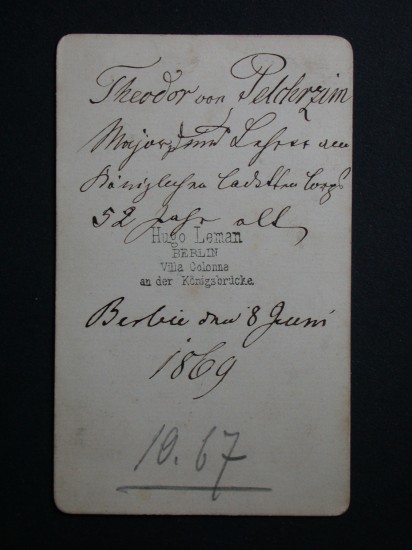 Theodor von Pelchrzim
Major und Lehrer am
Königlichen Cadetten Corps
52 Jahr alt
Hugo Leman
BERLIN
Villa Colonna
an der Königsbrücke.
Berlin den 8 Juni
1869
10.67